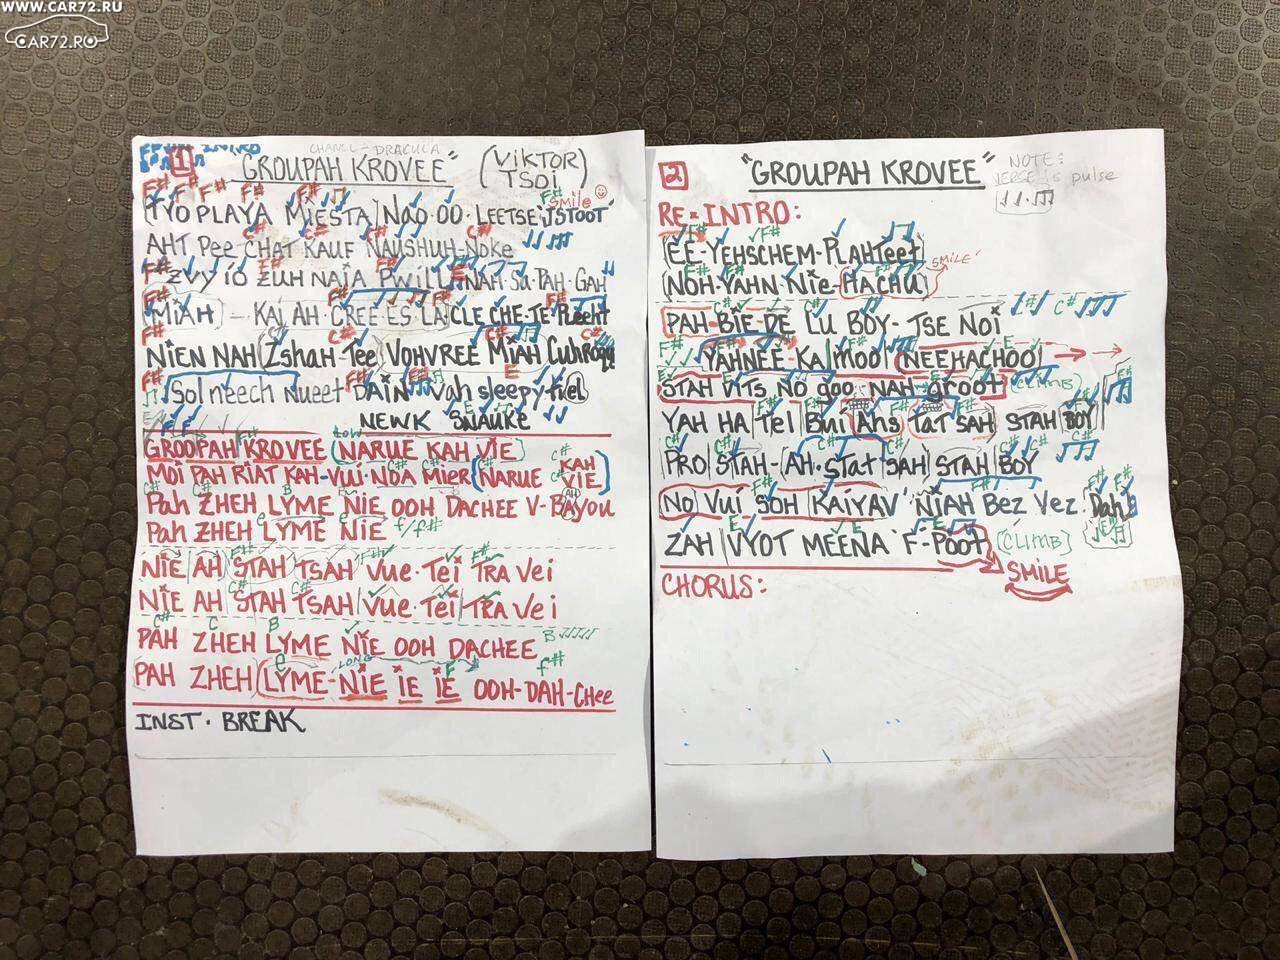 WWW.CAR72.RU
CAR72.RU
CHANEL - DRACULA
1 "GROUPAH KROVEE" (VIKTOR TSOI)
F# F# F# F# F# F# SMILE
TYO PLAYA MIESTA NAO·OO·LEETSE·ISTOOT
C# C# C# C#
AHT Pee CHAT KAUF NAUSHUH-NOKE
ZVY IO ZUH NAIA PWILL NAH·SU·PAH·GAH
MIAH - KAI AH·CREE ES LA CLE CHE·TE Pleeht
NIEN NAH ZshaH Tee VOHVREE MIAH
Sol neech nueet DAIN Vah sleepy tiel
NEWK SNAUKE
GROOPAH KROVEE (NARUE KAH VIE
MOI PAH RIAT KAH-VUI·NOA MIER (NARUE KAH VIE)
Pah ZHEH LYME NIE OOH DACHEE V-BAYOU
Pah ZHEH LYME NIE f/f#
NIE AH STAH TSAH VUE·TEI TRA Vei
NIE AH STAH TSAH VUE·TEI TRA Vei
C# C B
PAH ZHEH LYME NIE OOH DACHEE B
e LONG F f#
PAH ZHEH (LYME-NIE IE IE OOH-DAH-CHee
INST. BREAK
2 "GROUPAH KROVEE" NOTE: VERSE is pulse
RE-INTRO:
EE-YEHSCHEM-PLAHTeet
SMILE
NOH YAHN NIE-HACHU
PAH-BIE DE LU BOY-TSE NOI
YAHNEE-KA MOO (NEEHACHOO)
STAH VITS NO goo NAH-groot (CLIMB)
YAH HA Tel BUI AHS TAT SAH STAH BOY
PRO STAH-AH·STAT SAH STAH BOY
NO VUI SOH KAIYAV' NIAH BEZ VEZ Dah
ZAH VYOT MEENA F-POOT (CLIMB)
SMILE
CHORUS: